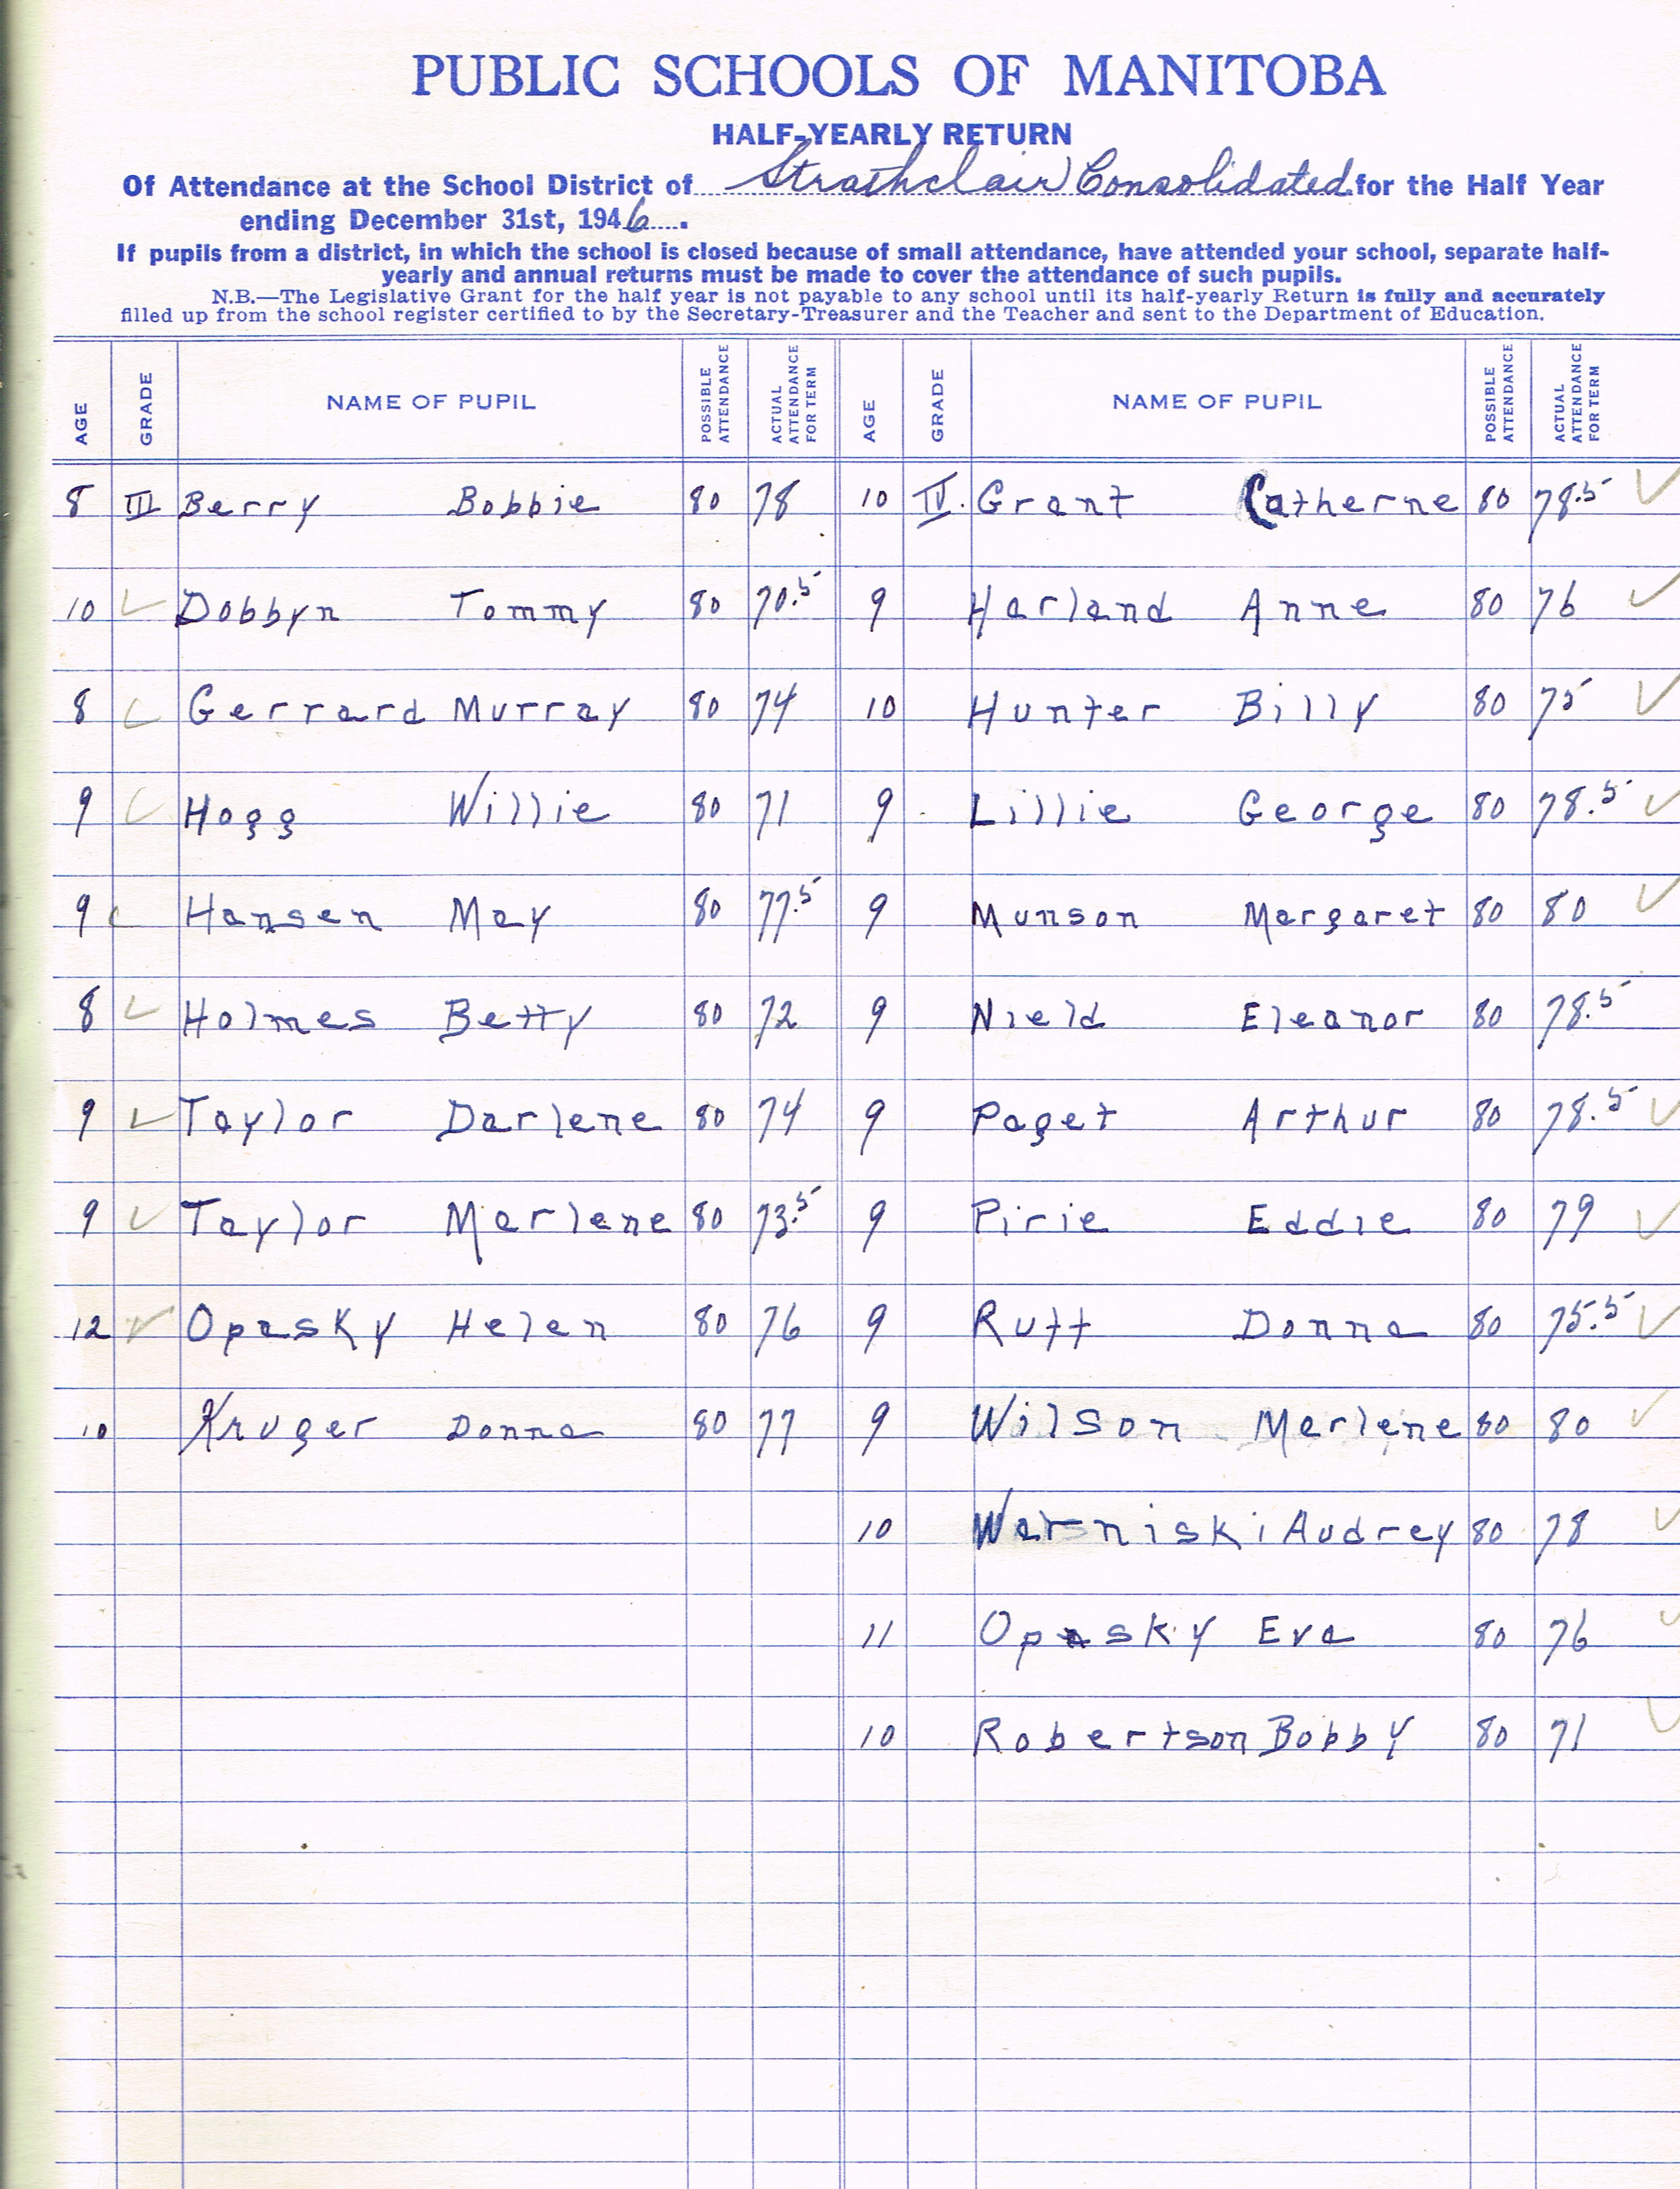 PUBLIC SCHOOLS OF MANITOBA
HALF-YEARLY RETURN
Of Attendance at the School District of Strathclair Consolidated for the Half Year
ending December 31st, 1946.
If pupils from a district, in which the school is closed because of small attendance, have attended your school, separate half-
yearly and annual returns must be made to cover the attendance of such pupils.
N.B.—The Legislative Grant for the half year is not payable to any school until its half-yearly Return is fully and accurately
filled up from the school register certified to by the Secretary-Treasurer and the Teacher and sent to the Department of Education.
AGE GRADE NAME OF PUPIL POSSIBLE ATTENDANCE ACTUAL ATTENDANCE FOR TERM AGE GRADE NAME OF PUPIL POSSIBLE ATTENDANCE ACTUAL ATTENDANCE FOR TERM
8 III Berry Bobbie 80 78 10 IV. Grant Catherne 80 78.5 ✓
10 ✓ Dobbyn Tommy 80 70.5 9 Harland Anne 80 76 ✓
8 ✓ Gerrard Murray 80 74 10 Hunter Billy 80 75 ✓
9 ✓ Hogg Willie 80 71 9 Lillie George 80 78.5 ✓
9 ✓ Hansen May 80 77.5 9 Munson Margaret 80 80 ✓
8 ✓ Holmes Betty 80 72 9 Nield Eleanor 80 78.5
9 ✓ Taylor Darlene 80 74 9 Paget Arthur 80 78.5 ✓
9 ✓ Taylor Marlene 80 73.5 9 Pirie Eddie 80 79 ✓
12 ✓ Opasky Helen 80 76 9 Rutt Donna 80 75.5 ✓
10 Kruger Donna 80 77 9 Wilson Merlene 80 80 ✓
10 Warniski Audrey 80 78 ✓
11 Opasky Eva 80 76 ✓
10 Robertson Bobby 80 71 ✓